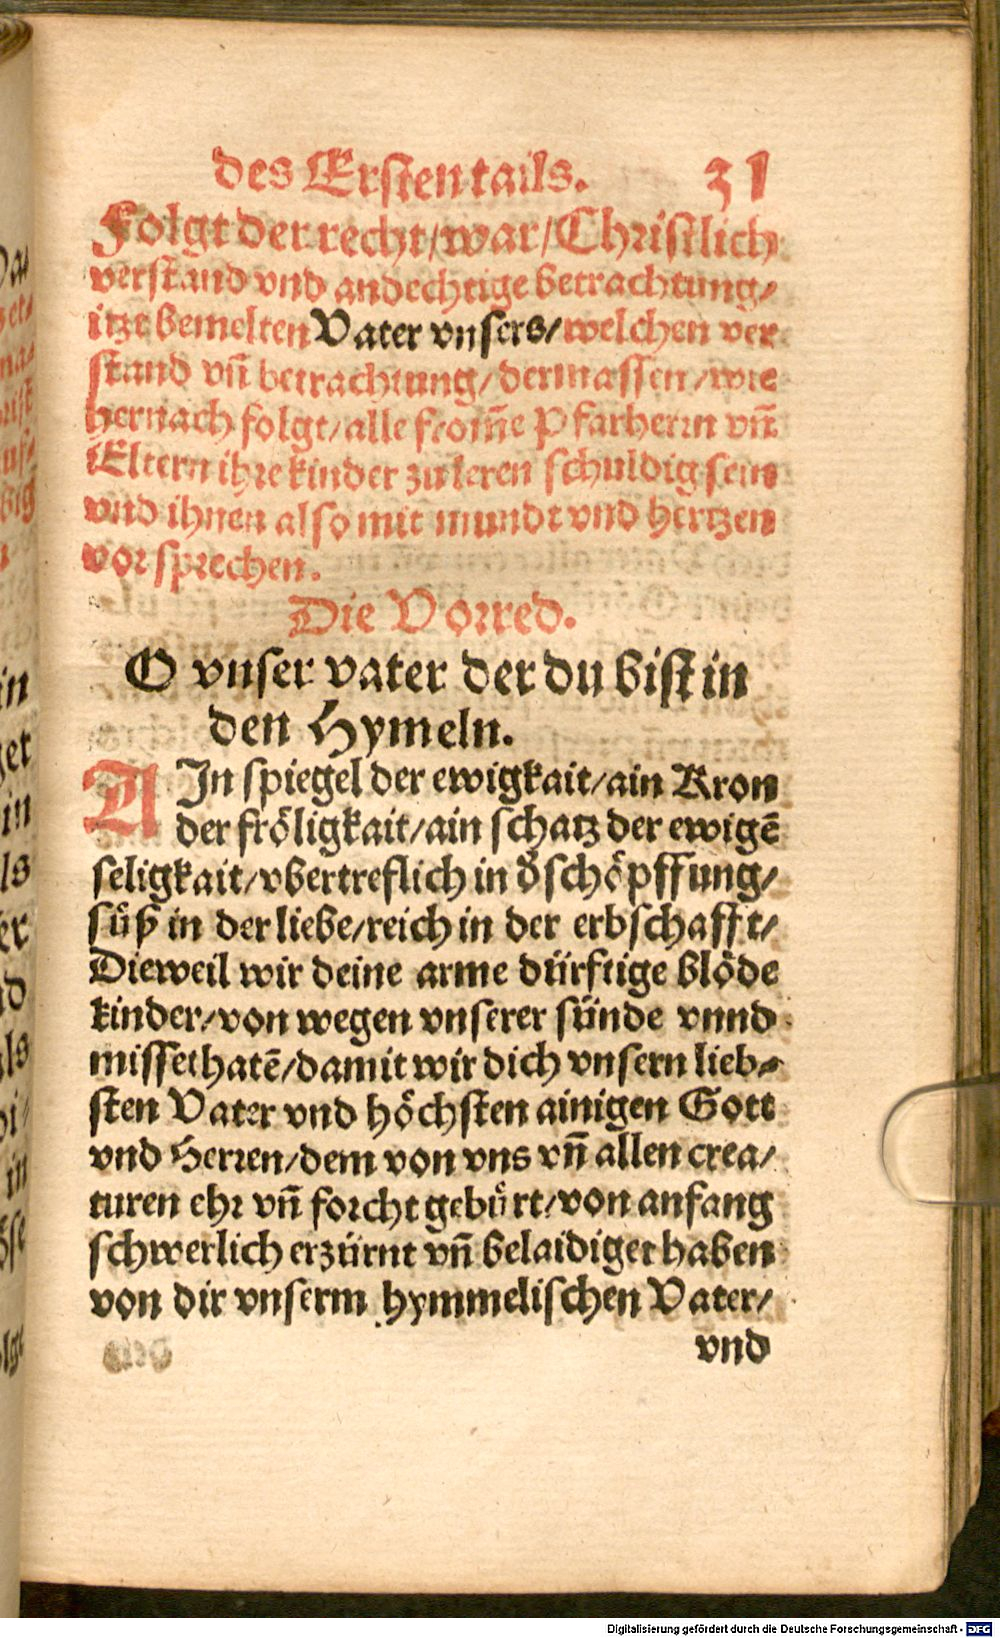 des Ersten tails. 31
Folgt der recht/war/Christlich
verstand vnd andechtige betrachtung/
itzt bemelten Vater vnsers/welchen ver
stand vn̄ betrachtung/dermassen/wie
hernach folgt/alle from̄e Pfarherrn vn̄
Eltern ihre kinder zu leren schuldig sein
vnd ihnen also mit mundt vnd hertzen
vor sprechen.
Die Vorred.
O vnser vater der du bist in
den Hymeln.
AIn spiegel der ewigkait/ain Kron
der fröligkait/ain schatz der ewigē
seligkait/vbertreflich in d̄ schöpffung/
süß in der liebe/reich in der erbschafft/
Dieweil wir deine arme dürftige blöde
kinder/von wegen vnserer sünde vnnd
missethatē/damit wir dich vnsern lieb-
sten Vater vnd höchsten ainigen Gott
vnd Herren/dem von vns vn̄ allen crea/
turen ehr vn̄ forcht gebürt/von anfang
schwerlich erzürnt vn̄ belaidiget haben
von dir vnserm hymmelischen Vater/
vnd
Digitalisierung gefördert durch die Deutsche Forschungsgemeinschaft - DFG